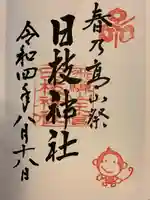 春乃高山祭
日枝神社
令和四年八月十八日